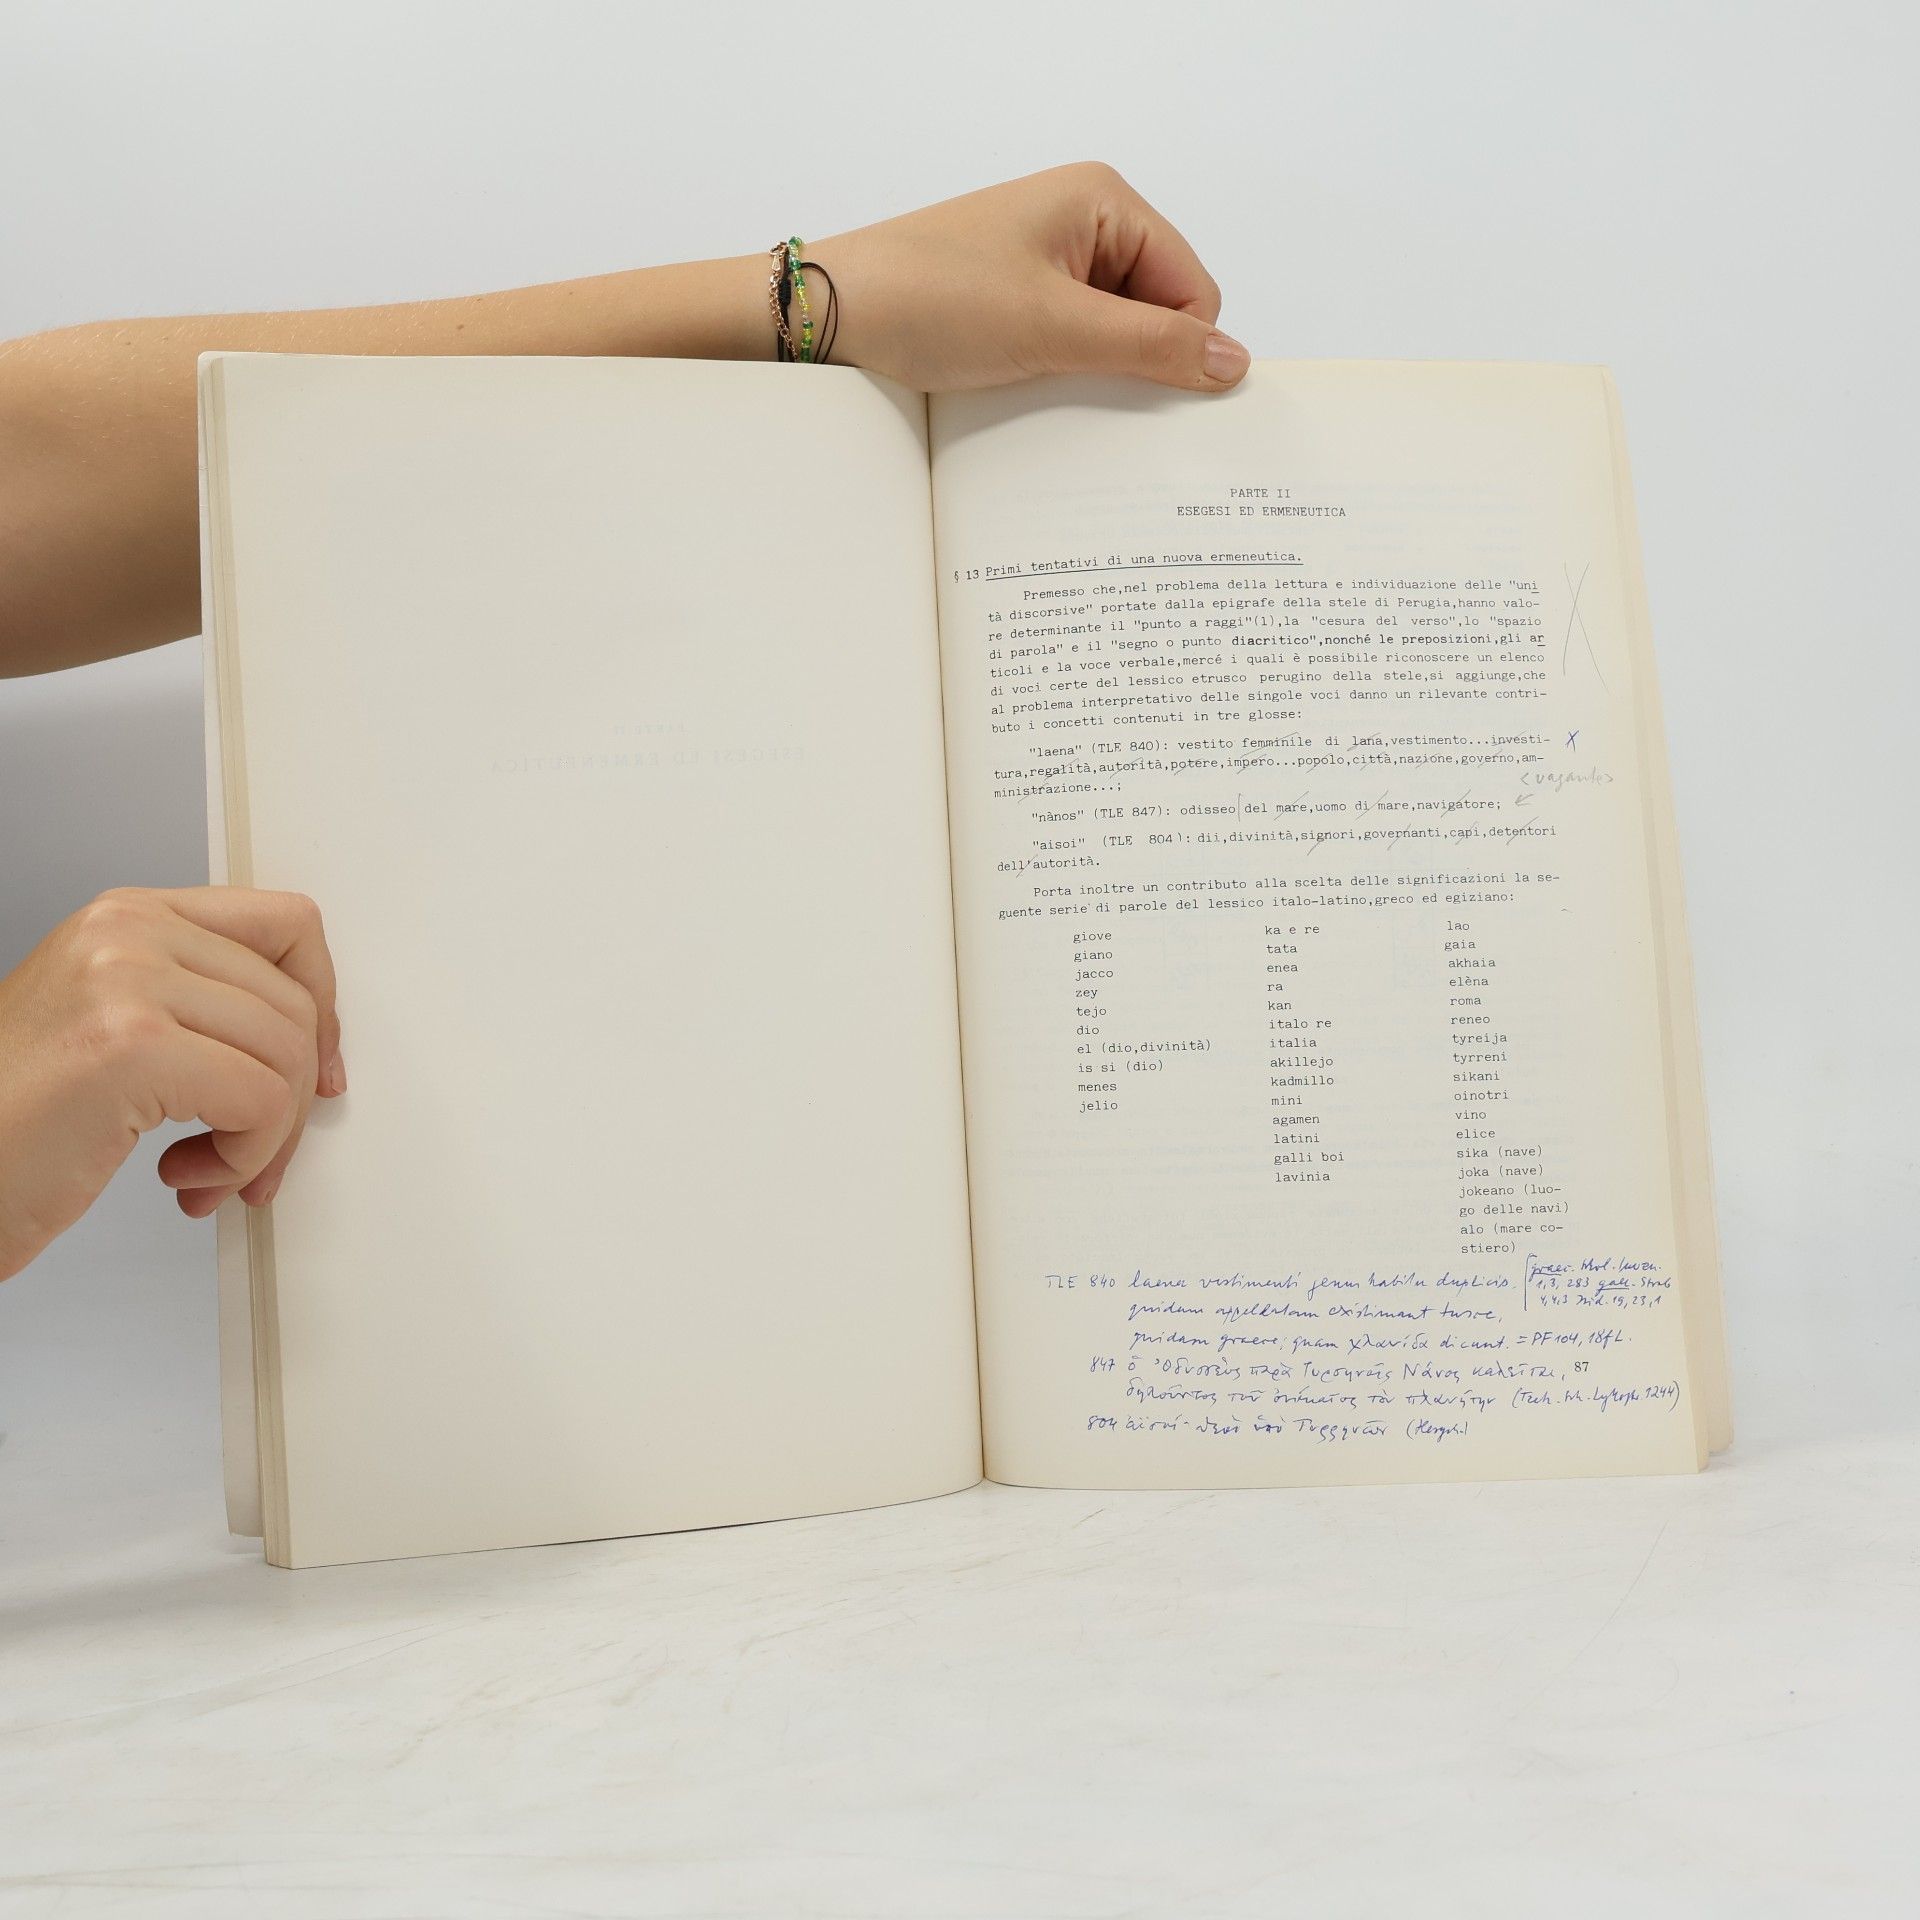 PARTE II
ESEGESI ED ERMENEUTICA
§ 13 Primi tentativi di una nuova ermeneutica.
Premesso che,nel problema della lettura e individuazione delle "uni
tà discorsive" portate dalla epigrafe della stele di Perugia,hanno valo-
re determinante il "punto a raggi"(1),la "cesura del verso",lo "spazio
di parola" e il "segno o punto diacritico",nonché le preposizioni,gli ar
ticoli e la voce verbale,mercé i quali è possibile riconoscere un elenco
di voci certe del lessico etrusco perugino della stele,si aggiunge,che
al problema interpretativo delle singole voci danno un rilevante contri-
buto i concetti contenuti in tre glosse:
"laena" (TLE 840): vestito femminile di lana,vestimento...investi- X
tura,regalità,autorità,potere,impero...popolo,città,nazione,governo,am-
ministrazione...;
<vagante>
"nànos" (TLE 847): odisseo del mare,uomo di mare,navigatore;
"aisoi" (TLE 804): dii,divinità,signori,governanti,capi,detentori
dell'autorità.
Porta inoltre un contributo alla scelta delle significazioni la se-
guente serie di parole del lessico italo-latino,greco ed egiziano:
giove
giano
jacco
zey
tejo
dio
el (dio,divinità)
is si (dio)
menes
jelio
ka e re
tata
enea
ra
kan
italo re
italia
akillejo
kadmillo
mini
agamen
latini
galli boi
lavinia
lao
gaia
akhaia
elèna
roma
reneo
tyreija
tyrreni
sikani
oinotri
vino
elice
sika (nave)
joka (nave)
jokeano (luo-
go delle navi)
alo (mare co-
stiero)
TLE 840 laena vestimenti genus habitu duplicis.
graec. Schol. Iuven.
1,3, 283 gall. Strab
4,4,3 Isid. 19, 23, 1
quidam appellatam existimant tusce,
quidam graece, quam χλανίδα dicunt. = PF 104, 18f L.
847 ὁ Ὀδυσσεὺς παρὰ Τυρσηνοῖς Νάνος καλεῖται,
87
δηλοῦντος τοῦ ὀνόματος τὸν πλανήτην (Tzetz. Sch. Lykophr. 1244)
804 αἰσοί· θεοὶ ὑπὸ Τυρρηνῶν (Hesych.)